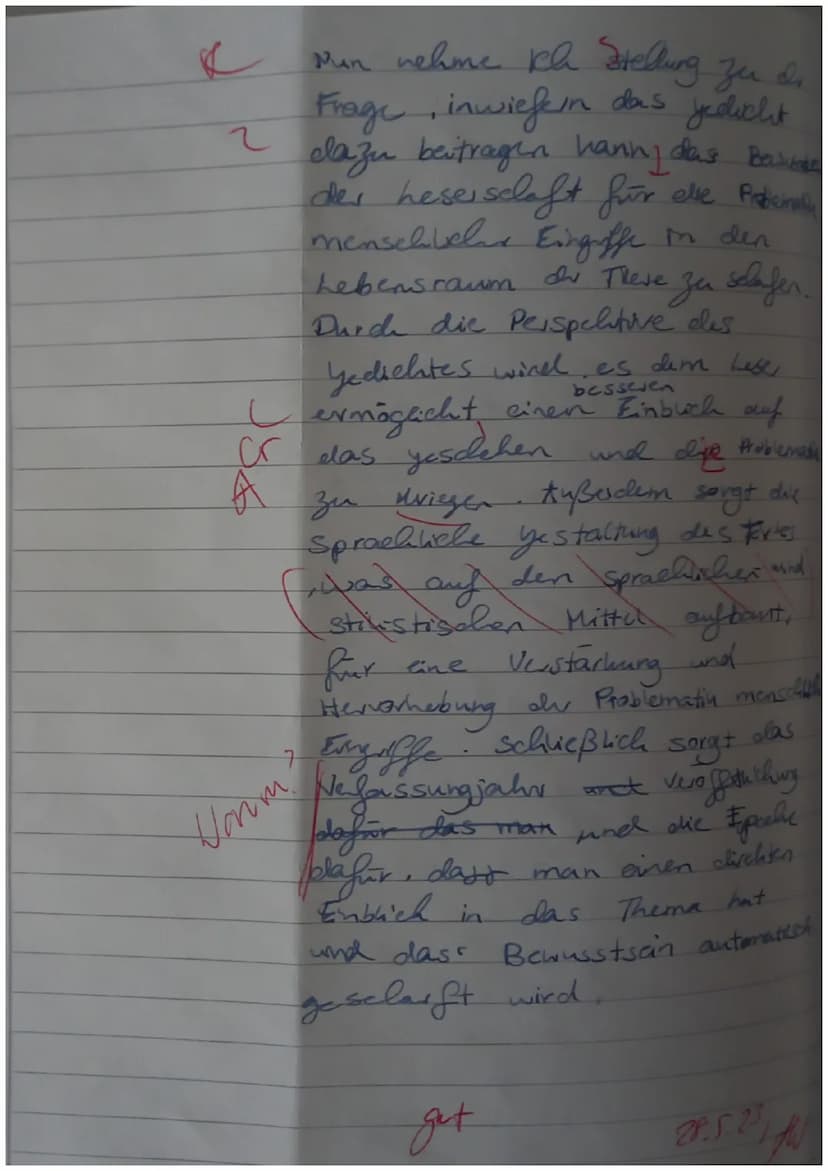 R Nun nehme ich Stellung zu d.
Frage, inwiefern das Gedicht
Z dazu beitragen kann, das
der Leserschaft für die Problematik
menschlicher Eingriffe in den
Lebensraum der Tiere zu schafen.
Durch die Perspektive des
Gedichtes wird es dem Leser
besseren
ermöglicht, einen Einblick auf
Gr das Geschehen und die Problematik
A zu kriegen. Außerdem sorgt die
Sprachliche Gestaltung des Textes
, was auf den sprachlichen und
stilistischen Mittel aufbaut,
für eine Verstärkung und
Hervorhebung der Problematik menschlich
Eingriffe. Schließlich sorgt das
Warum? Verfassungjahr und Veröffentlichung
dafür das man und die Epoche
dafür, dass man einen direkten
Einblick in das Thema hat
und dass Bewusstsein automatisch
geschärft wird.
gut
28.5.23